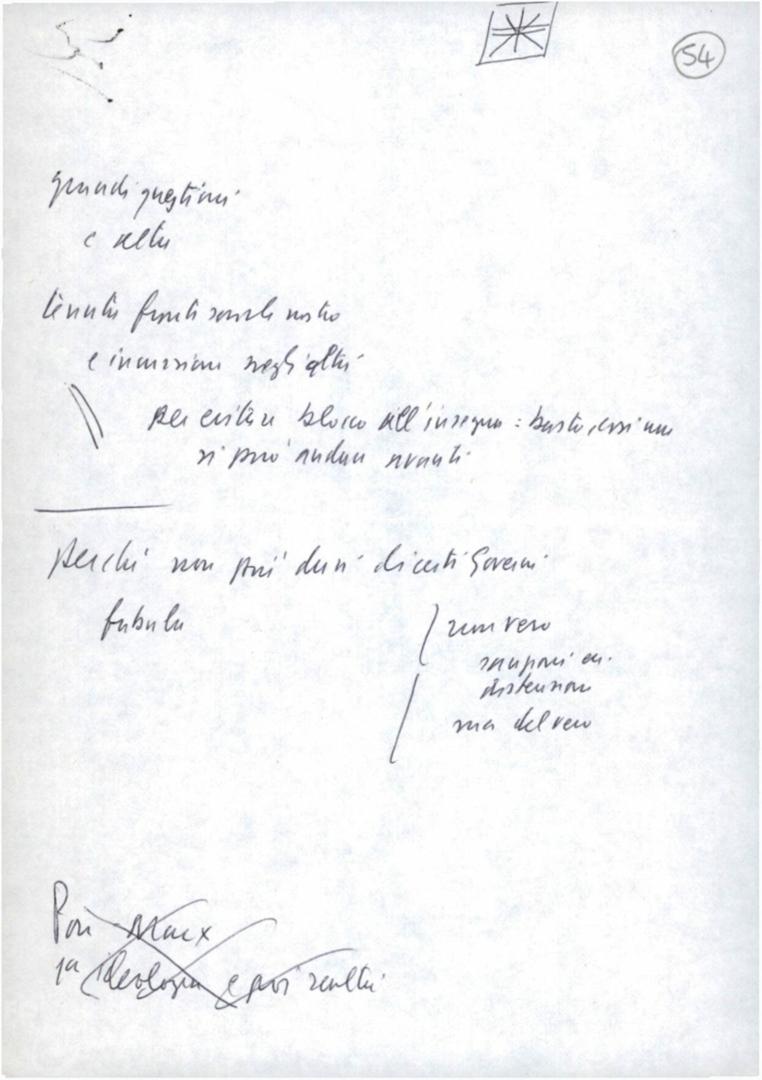 54
grandi questioni
e altre
tenuta fronte sociale nostro
e incursioni negli altri
per evitare blocco all'insegna: basta, così non
si può andare avanti
Perché non può dirsi di certi Governi
fabula
non vero
distensione
ma del vero
Poi Marx
ideologia e poi realtà